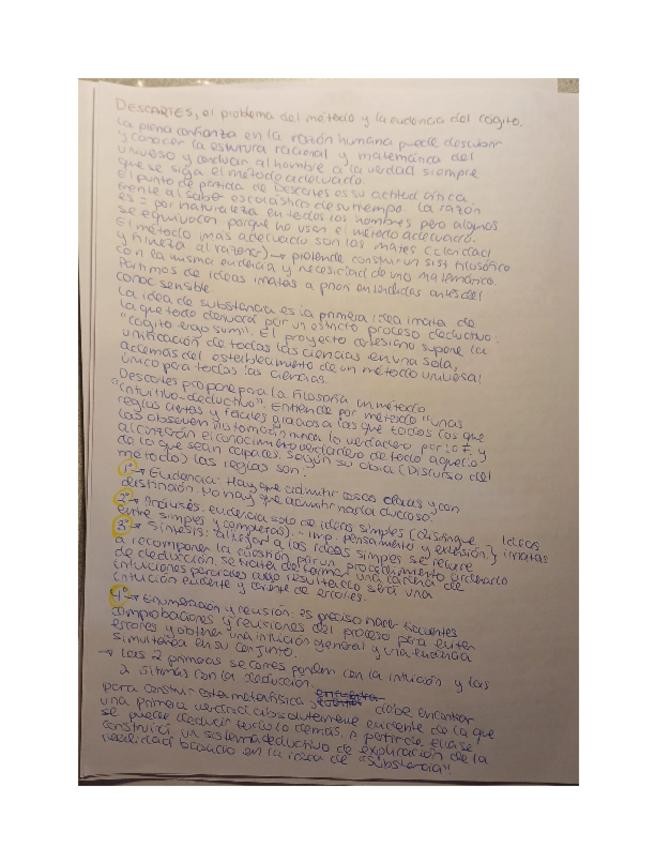 DESCARTES, el problema del método y la evidencia del cogito.
La plena confianza en la razón humana puede descubrir
y conocer la estrutura racional y matemática del
universo y conducir al hombre a la verdad siempre
que se siga el método adecuado.
El punto de partida de Descartes es su actitud crítica
frente al saber escolástico de su tiempo. La razón
es = por naturaleza en todos los hombres pero algunos
se equivocan porque no usan el método adecuado.
El método más adecuado son las mates (claridad
y fineza al razonar) → pretende construir un sist filosófico
con la misma evidencia y necesidad de una matemática.
Partimos de ideas inatas a priori entendidas antes del
conoc sensible.
La idea de substancia es la primera idea inata de
la que todo derivará por un estricto proceso deductivo:
"cogito ergo sum". El proyecto cartesiano supone la
unificación de todas las ciencias en una sola,
además del establecimiento de un método universal
único para todas las ciencias.
Descartes propone para la filosofía un método
"intuitivo-deductivo". Entiende por método "unas
reglas ciertas y fáciles gracias a las que todos los que
las observen no tomarán nunca lo verdadero por lo F, y
alcanzarán el conocimiento verdadero de todo aquello
de lo que sean capaces. Según su obra (Discurso del
método) las reglas son:
1º → Evidencia: Hay que admitir cosas claras y con
distinción. No hay que admitir nada dudoso.
2º → Análisis: evidencia solo de ideas simples (distingue
entre simples y complejas). - Imp. pensamiento y extensión. } Ideas inatas
3º → Síntesis: al llegar a las ideas simples se requiere
a recomponer la cuestión por un procedimiento ordenado
de deducción. Se trata de formar una cadena de
intuiciones parciales cuyo resultado será una
intuición evidente y carente de errores.
4º → Enumeración y revisión: es preciso hacer frecuentes
comprobaciones y revisiones del proceso para evitar
errores y obtener una intuición general y una evidencia
simultánea en su conjunto.
→ Las 2 primeras se corresponden con la intuición y las
2 últimas con la deducción.
Para construir esta metafísica debe encontrar
una primera verdad absolutamente evidente de la que
se puede deducir todo lo demás, a partir de ella se
construirá un sistema deductivo de explicación de la
realidad basado en la idea de "Substancia".